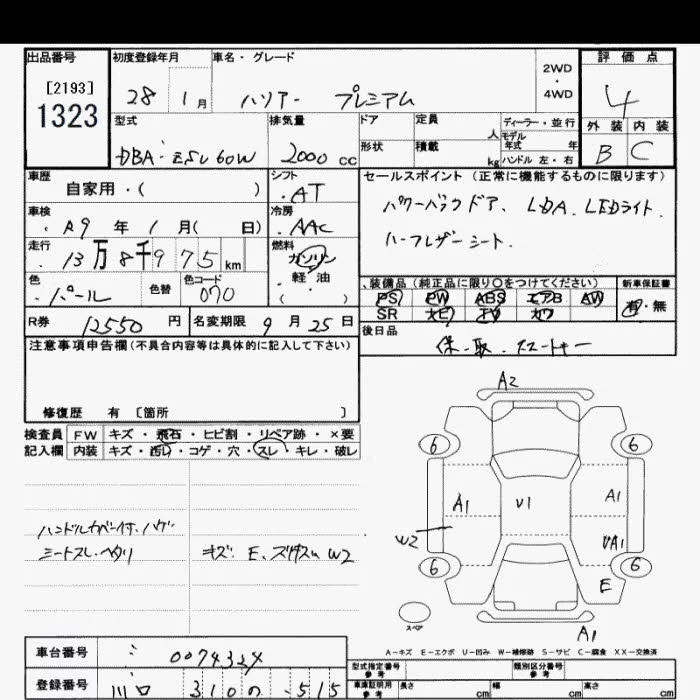 出品番号 初度登録年月 車名・グレード 評価点
[2193] 28 1月 ハリアー プレミアム 2WD・4WD 4
1323 外装 内装
型式 排気量 ドア 定員 人 ディーラー・並行
B C
DBA- 60W 2000 cc 形状 積載 kg モデル年式 年
ハンドル 左・右
車歴 シフト セールスポイント (正常に機能するものに限ります)
自家用・( ) AT
車検 冷房 パワーバックドア、LDA、LEDライト
R9年 1月( 日) AAC ハーフレザーシート
走行 燃料
13万8千975km ガソリン・軽・油 ( )
色 色替 色コード 装備品(純正品に限り○をつけてください) 新車保証書
パール 070 PS PW ABS エアB AW 有・無
SR ナビ TV カワ
R券 12550円 名変期限 9月25日 後日品
保・取・スマートキー
注意事項申告欄(不具合内容等は具体的に記入して下さい)
修復歴 有 [箇所 ]
検査員 FW キズ・飛石・ヒビ割・リペア跡・×要
記入欄 内装 キズ・汚レ・コゲ・穴・スレ・キレ・破レ
A2
6 6
A1 V1 A1
W2 UA1
6 6
E
スペア
A1
ハンドルカバー付、ハゲ
シートスレ・ヘタリ キズ、E、 W2
A-キズ E-エクボ U-凹み W-補修跡 S-サビ C-腐食 XX-交換済
車台番号 0074324
型式指定番号 参考 類別区分番号 参考
登録番号 310 の ・515
車庫証明用 参考 長さ cm 幅 cm 高さ cm